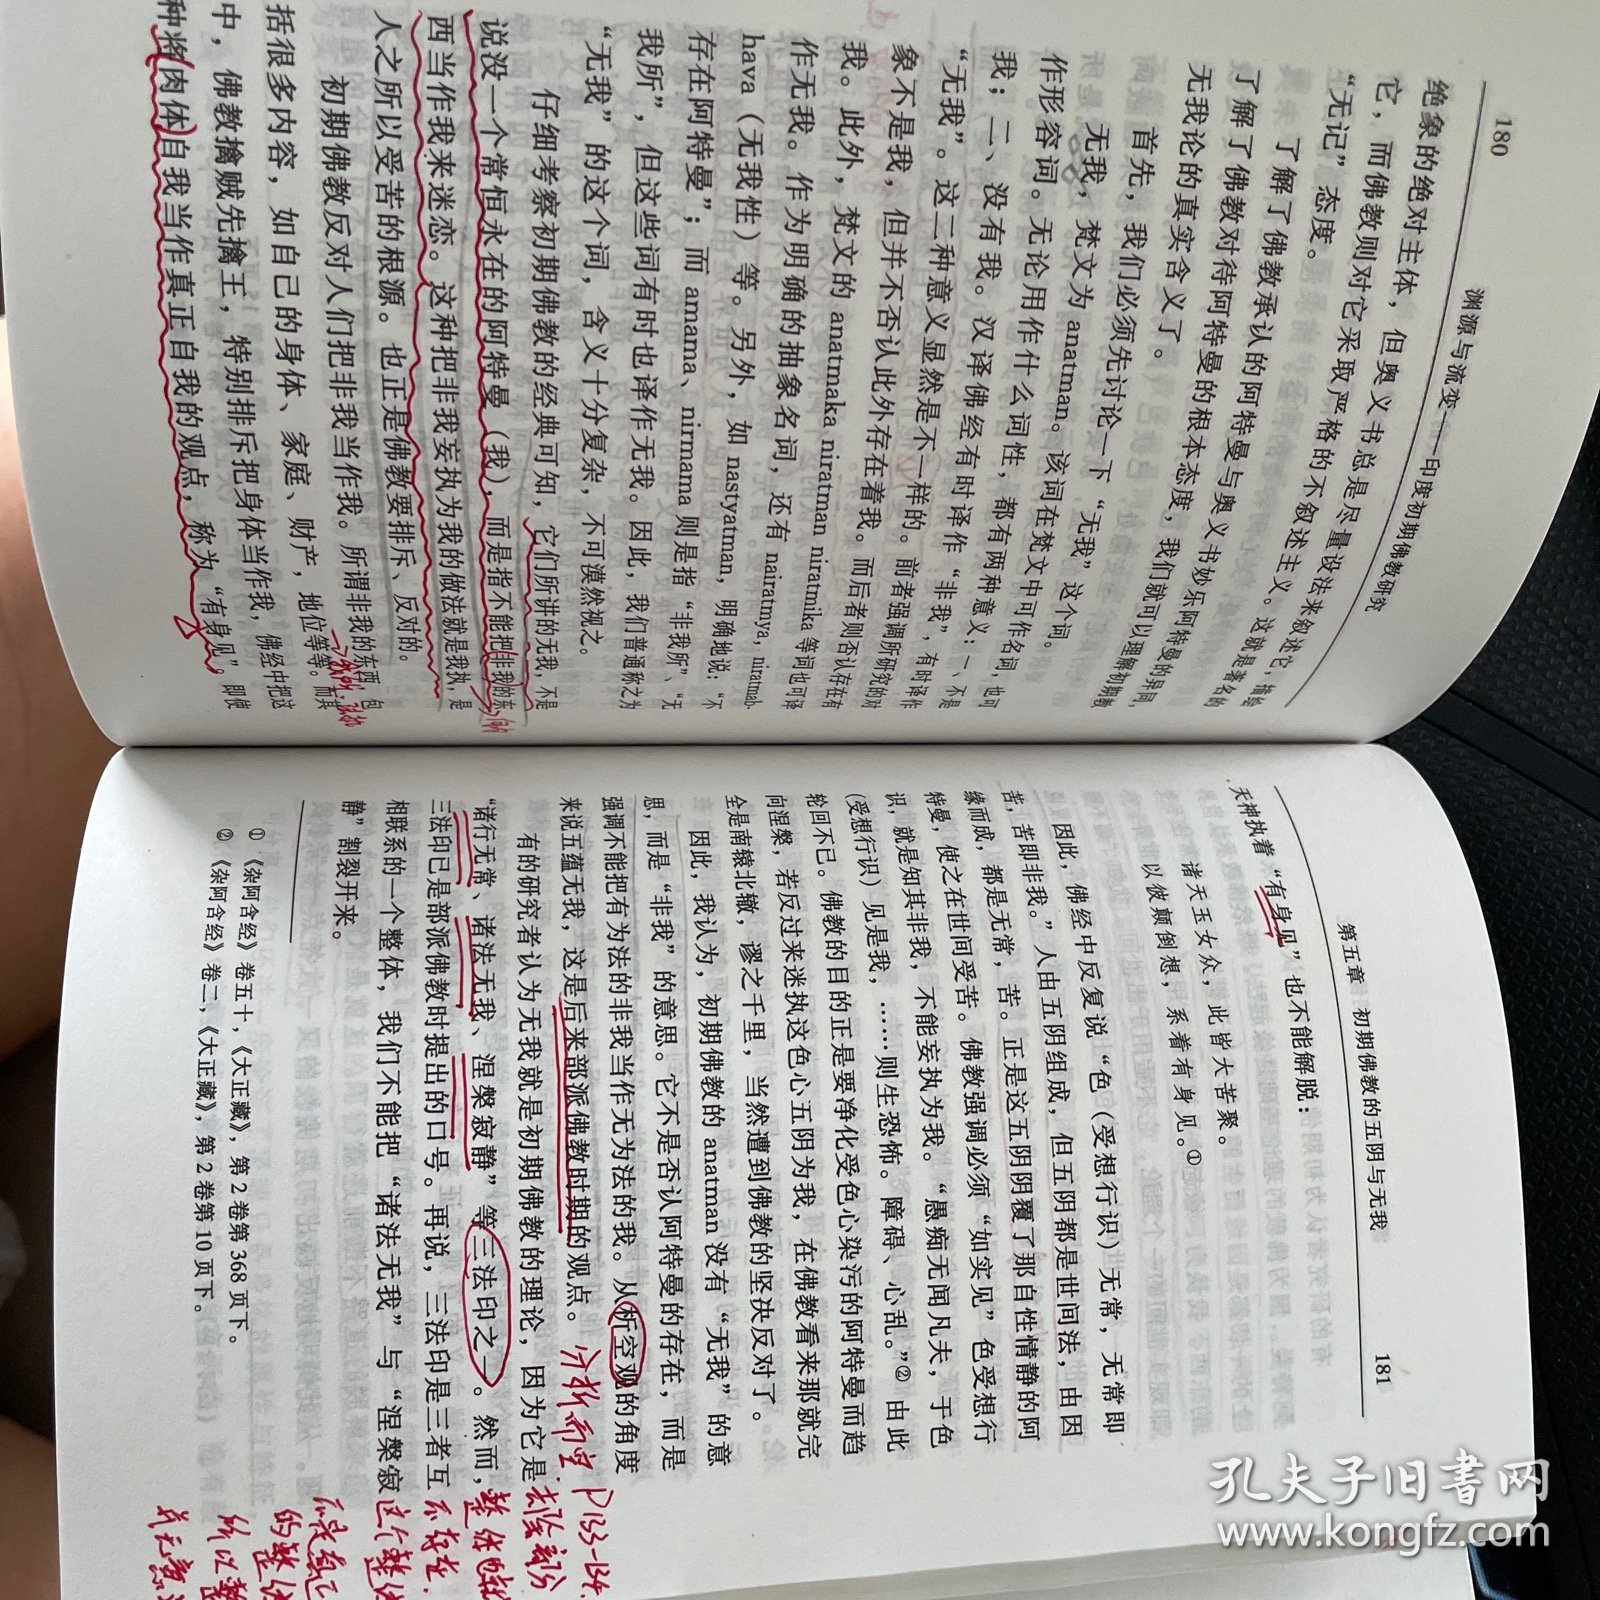 180
渊源与流变——印度初期佛教研究
绝象的绝对主体，但奥义书总是尽量设法来叙述它，描绘
它，而佛教则对它采取严格的不叙述主义。这就是著名的
“无记”态度。
了解了佛教承认的阿特曼与奥义书妙乐阿特曼的异同，
了解了佛教对待阿特曼的根本态度，我们就可以理解初期佛教
无我论的真实含义了。
首先，我们必须先讨论一下“无我”这个词。
无我，梵文为 anatman。该词在梵文中可作名词，也可
作形容词。无论用作什么词性，都有两种意义：一、不是
我；二、没有我。汉译佛经有时译作“非我”，有时译作
“无我”。这二种意义显然是不一样的。前者强调所研究的对
象不是我，但并不否认此外存在着我。而后者则否认存在有
我。此外，梵文的 anatmaka niratman niratmika 等词也可译
作无我。作为明确的抽象名词，还有 nairatmya，niratmab-
hava（无我性）等。另外，如 nastyatman，明确地说：“不
存在阿特曼”；而 amama、nirmama 则是指“非我所”、“无
我所”，但这些词有时也译作无我。因此，我们普通称之为
“无我”的这个词，含义十分复杂，不可漠然视之。
仔细考察初期佛教的经典可知，它们所讲的无我，不是
说没一个常恒永在的阿特曼（我），而是指不能把非我的东
西当作我来迷恋。这种把非我妄执为我的做法就是我执，是
人之所以受苦的根源。也正是佛教要排斥、反对的。
初期佛教反对人们把非我当作我。所谓非我的东西，包
括很多内容，如自己的身体、家庭、财产，地位等等。而其
中，佛教擒贼先擒王，特别排斥把身体当作我，佛经中把这
种将肉体自我当作真正自我的观点，称为“有身见”，即使
第五章 初期佛教的五阴与无我
181
天神执着“有身见”也不能解脱：
诸天玉女众，此皆大苦聚。
以彼颠倒想，系着有身见。①
因此，佛经中反复说“色（受想行识）无常，无常即
苦，苦即非我。”人由五阴组成，但五阴都是世间法，由因
缘而成，都是无常，苦。正是这五阴阴覆了那自性情静的阿
特曼，使之在世间受苦。佛教强调必须“如实见”色受想行
识，就是知其非我，不能妄执为我。“愚痴无闻凡夫，于色
（受想行识）见是我，……则生恐怖。障碍、心乱。”②由此
轮回不已。佛教的目的正是要净化受色心染污的阿特曼而趋
向涅槃，若反过来迷执这色心五阴为我，在佛教看来那就完
全是南辕北辙，谬之千里，当然遭到佛教的坚决反对了。
因此，我认为，初期佛教的 anatman 没有“无我”的意
思，而是“非我”的意思。它不是否认阿特曼的存在，而是
强调不能把有为法的非我当作无为法的我。从析空观的角度
来说五蕴无我，这是后来部派佛教时期的观点。
有的研究者认为无我就是初期佛教的理论，因为它是
“诸行无常、诸法无我、涅槃寂静”等三法印之一。然而，
三法印已是部派佛教时提出的口号。再说，三法印是三者互
相联系的一个整体，我们不能把“诸法无我”与“涅槃寂
静”割裂开来。
① 《杂阿含经》卷五十，《大正藏》，第 2 卷第 368 页下。
② 《杂阿含经》卷二，《大正藏》，第 2 卷第 10 页下。
分析而空 P133-134.
去除部分
不存在
这个整体
孔夫子旧书网
www.kongfz.com